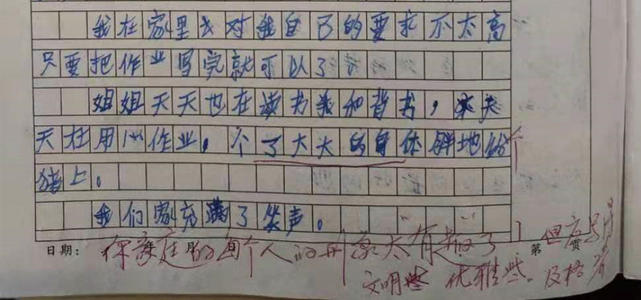 我在家里对我自己的要求不太高
只要把作业写完就可以了。
姐姐天天也在读书和背书，天
天在用心作业，个了大大的身体胖地
猪上。
我们家充满了笑声。
日期：
你家庭的每个人的形象太有趣了！但
文明些 优雅些 及格
第